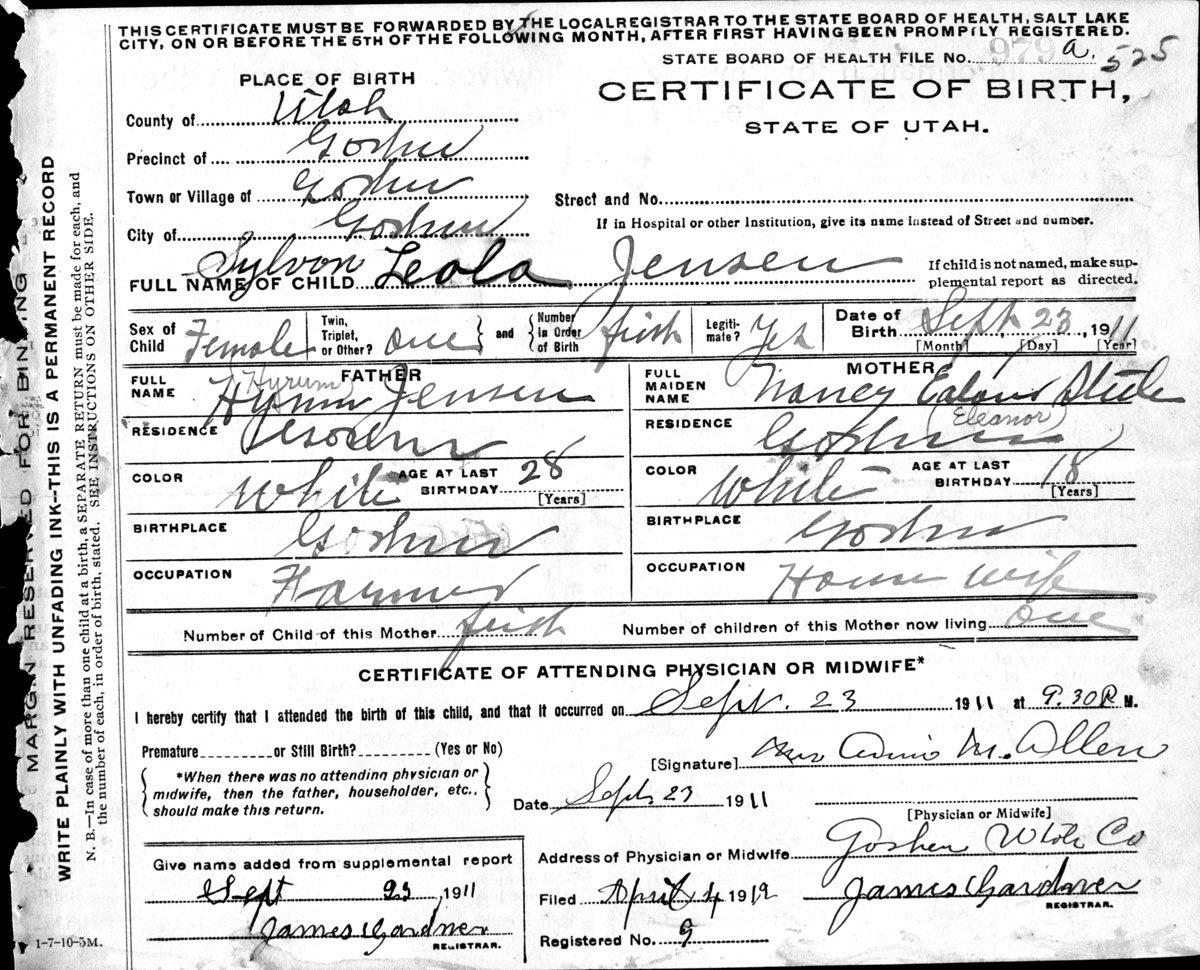 THIS CERTIFICATE MUST BE FORWARDED BY THE LOCAL REGISTRAR TO THE STATE BOARD OF HEALTH, SALT LAKE
CITY, ON OR BEFORE THE 5TH OF THE FOLLOWING MONTH, AFTER FIRST HAVING BEEN PROMPTLY REGISTERED.
STATE BOARD OF HEALTH FILE No. 979 a. 525
PLACE OF BIRTH
CERTIFICATE OF BIRTH,
STATE OF UTAH.
County of Utah
Precinct of Goshen
Town or Village of Goshen
Street and No.
City of Goshen
If in Hospital or other Institution, give its name instead of Street and number.
FULL NAME OF CHILD Sylvon Leola Jensen
If child is not named, make supplemental report as directed.
Sex of Child Female
Twin, Triplet, or Other? one
and Number in Order of Birth first
Legitimate? Yes
Date of Birth Sept 23, 1911
[Month] [Day] [Year]
FATHER
FULL NAME Hyrum Jensen
(Hyrum)
RESIDENCE Goshen
COLOR White
AGE AT LAST BIRTHDAY 28
[Years]
BIRTHPLACE Goshen
OCCUPATION Farmer
MOTHER
FULL MAIDEN NAME Nancy Steele
(Eleanor)
RESIDENCE Goshen
COLOR White
AGE AT LAST BIRTHDAY 18
[Years]
BIRTHPLACE Goshen
OCCUPATION House wife
Number of Child of this Mother first
Number of children of this Mother now living one
CERTIFICATE OF ATTENDING PHYSICIAN OR MIDWIFE*
I hereby certify that I attended the birth of this child, and that it occurred on Sept. 23 1911 at 9.30 P. M.
Premature or Still Birth? (Yes or No)
*When there was no attending physician or midwife, then the father, householder, etc., should make this return.
[Signature] Mrs M. Allen
Date Sept 23 1911
[Physician or Midwife]
Give name added from supplemental report
Sept 23, 1911
James Gardner
REGISTRAR.
Address of Physician or Midwife Goshen Utah Co
Filed April 4 1912
James Gardner
REGISTRAR.
Registered No. 9
1-7-10-5M.
MARGIN RESERVED FOR BINDING
WRITE PLAINLY WITH UNFADING INK—THIS IS A PERMANENT RECORD
N. B.—In case of more than one child at a birth, a SEPARATE RETURN must be made for each, and
the number of each, in order of birth, stated. SEE INSTRUCTIONS ON OTHER SIDE.